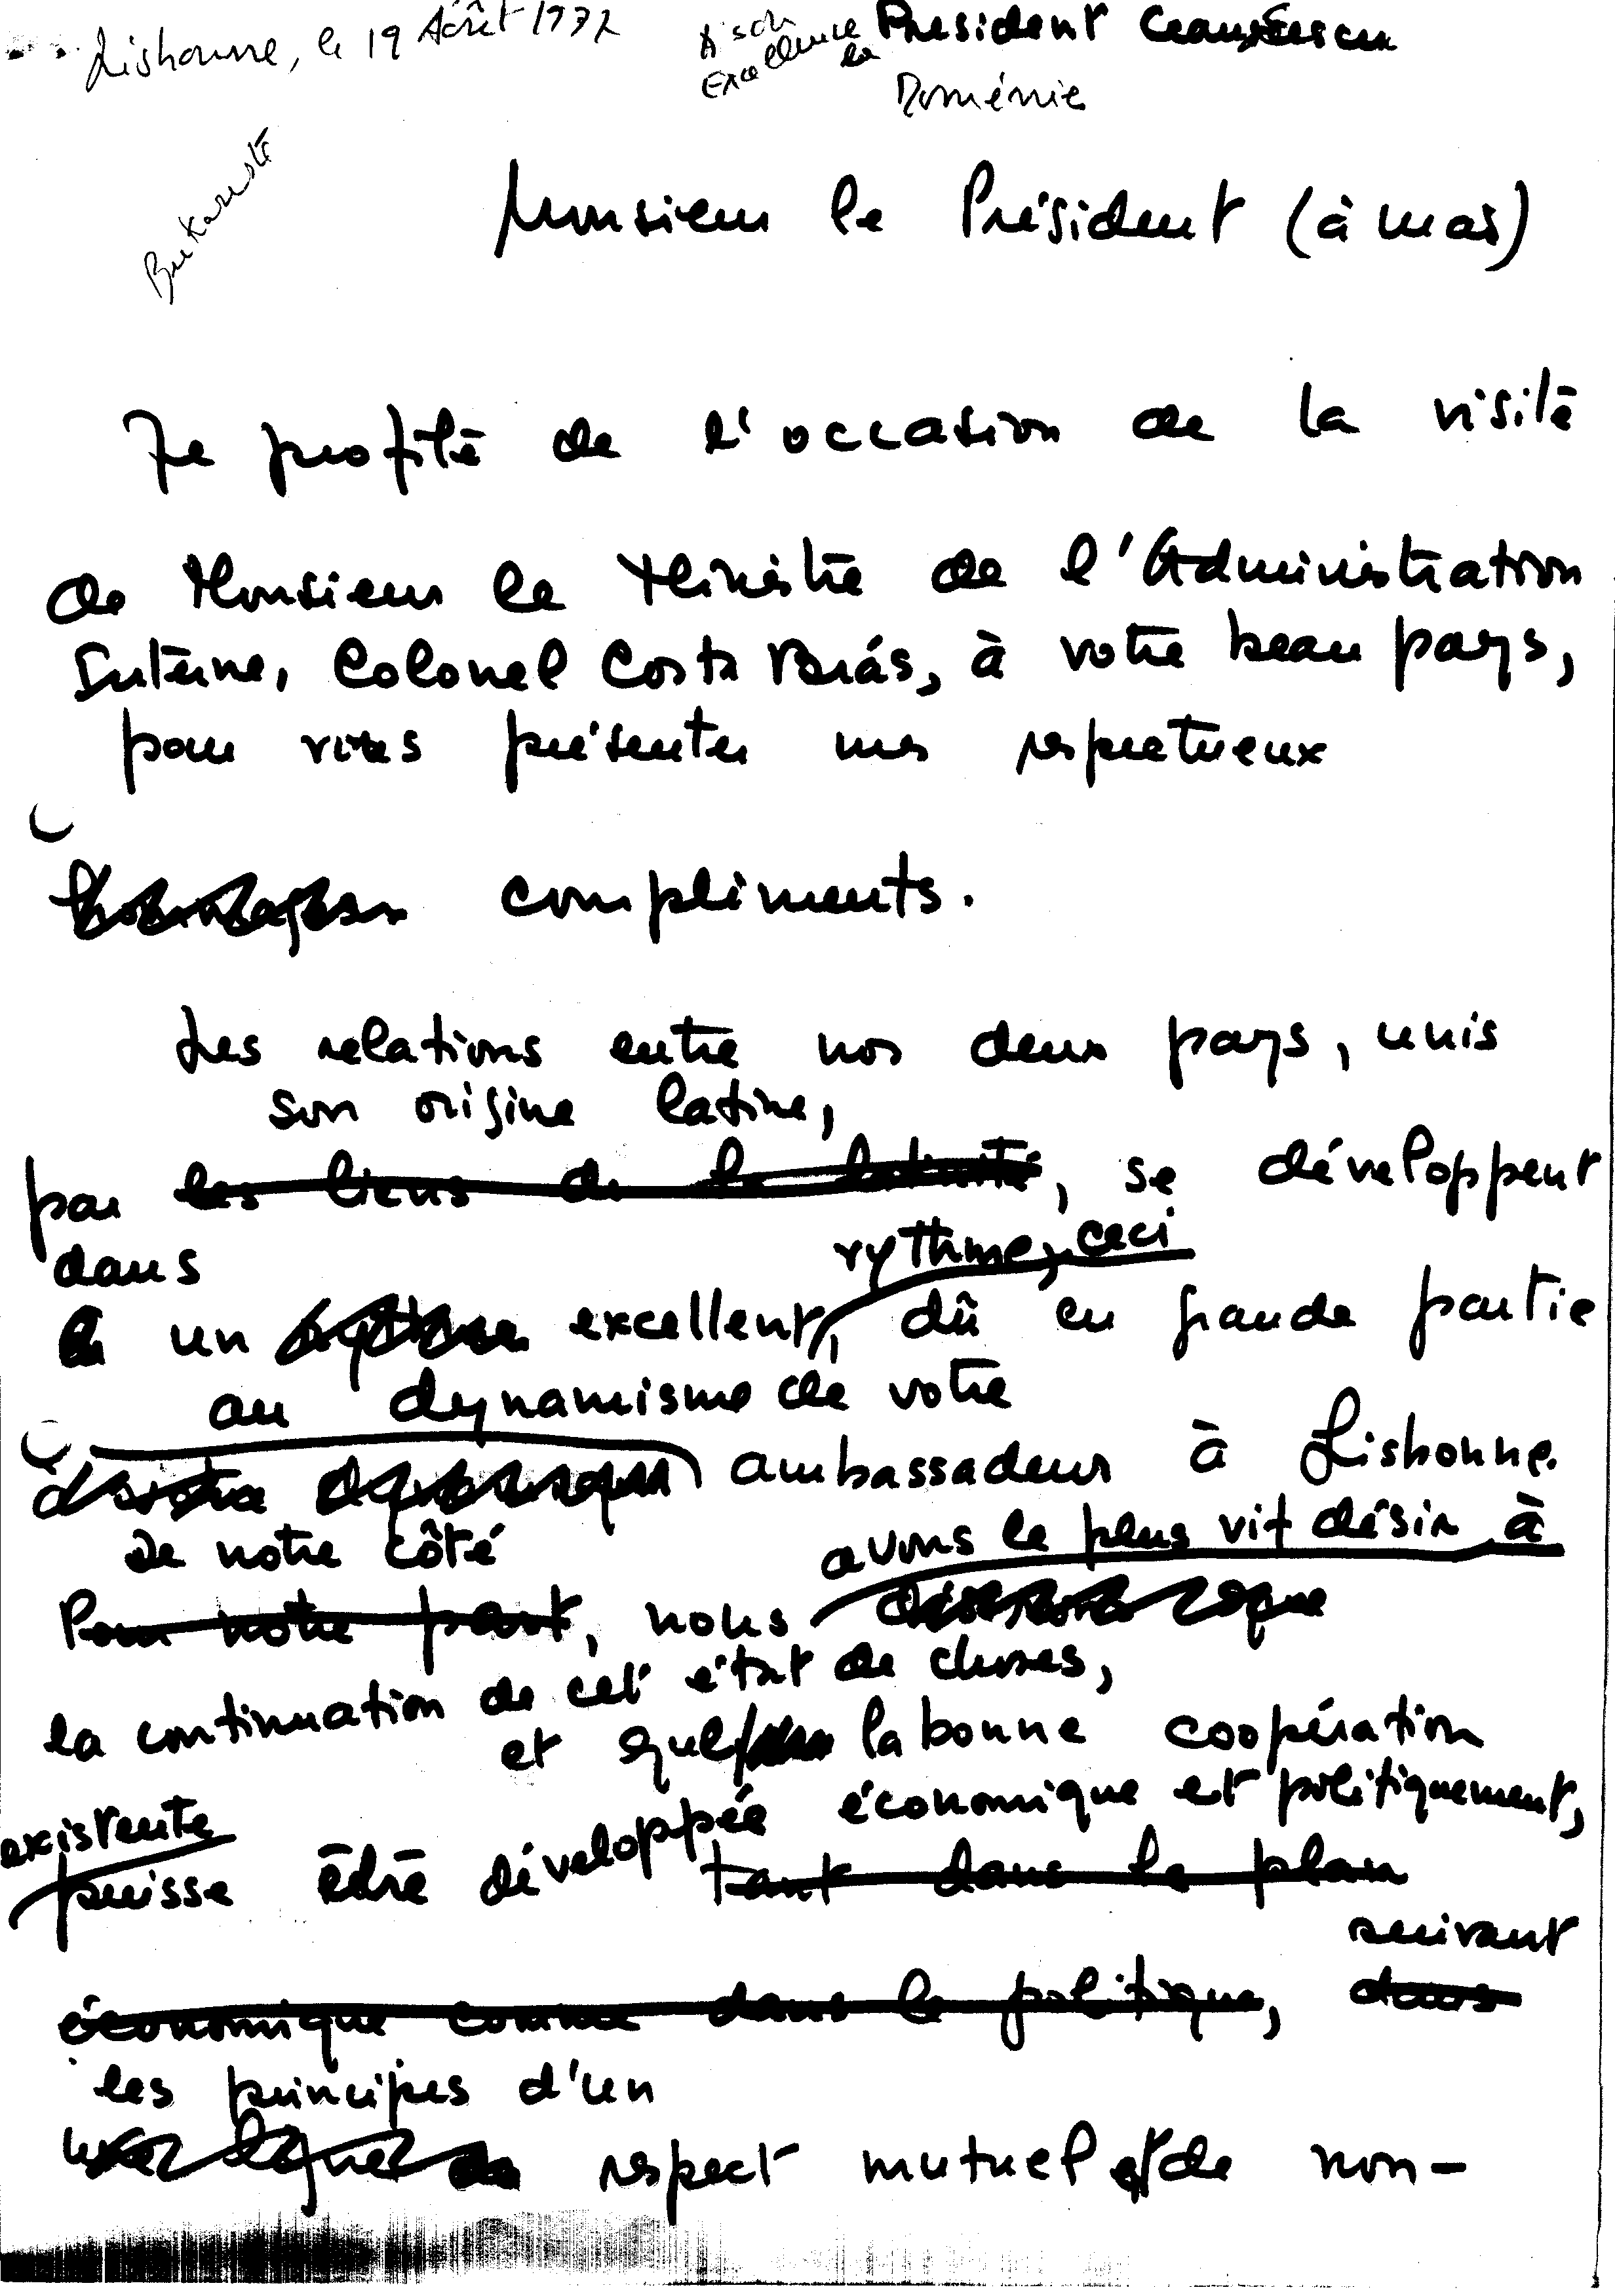 Lisbonne, le 19 Août 1977
A son Excellence le
President Ceausescu
Roménie
Bukareste
Monsieur le Président (à mas)
Je profite de l'occasion de la visite
de Monsieur le Ministre de l'Administration
Interne, Colonel Costa Brás, à votre beau pays,
pour vous présenter mes respectueux
hommages compliments.
Les relations entre nos deux pays, unis
son origine latine,
par les liens de la latinité, se développent
dans
rythme, ceci
un rythme excellent, dû en grande partie
au dynamisme de votre
ambassadeur à Lisbonne.
De notre côté
avons le plus vif désir à
Pour notre part, nous que
la continuation de cet état de choses,
et que la bonne coopération
existente
puisse être développée économique et politiquement,
tant dans le plan
suivant
économique comme dans le politique, dans
les principes d'un
respect mutuel et de non-